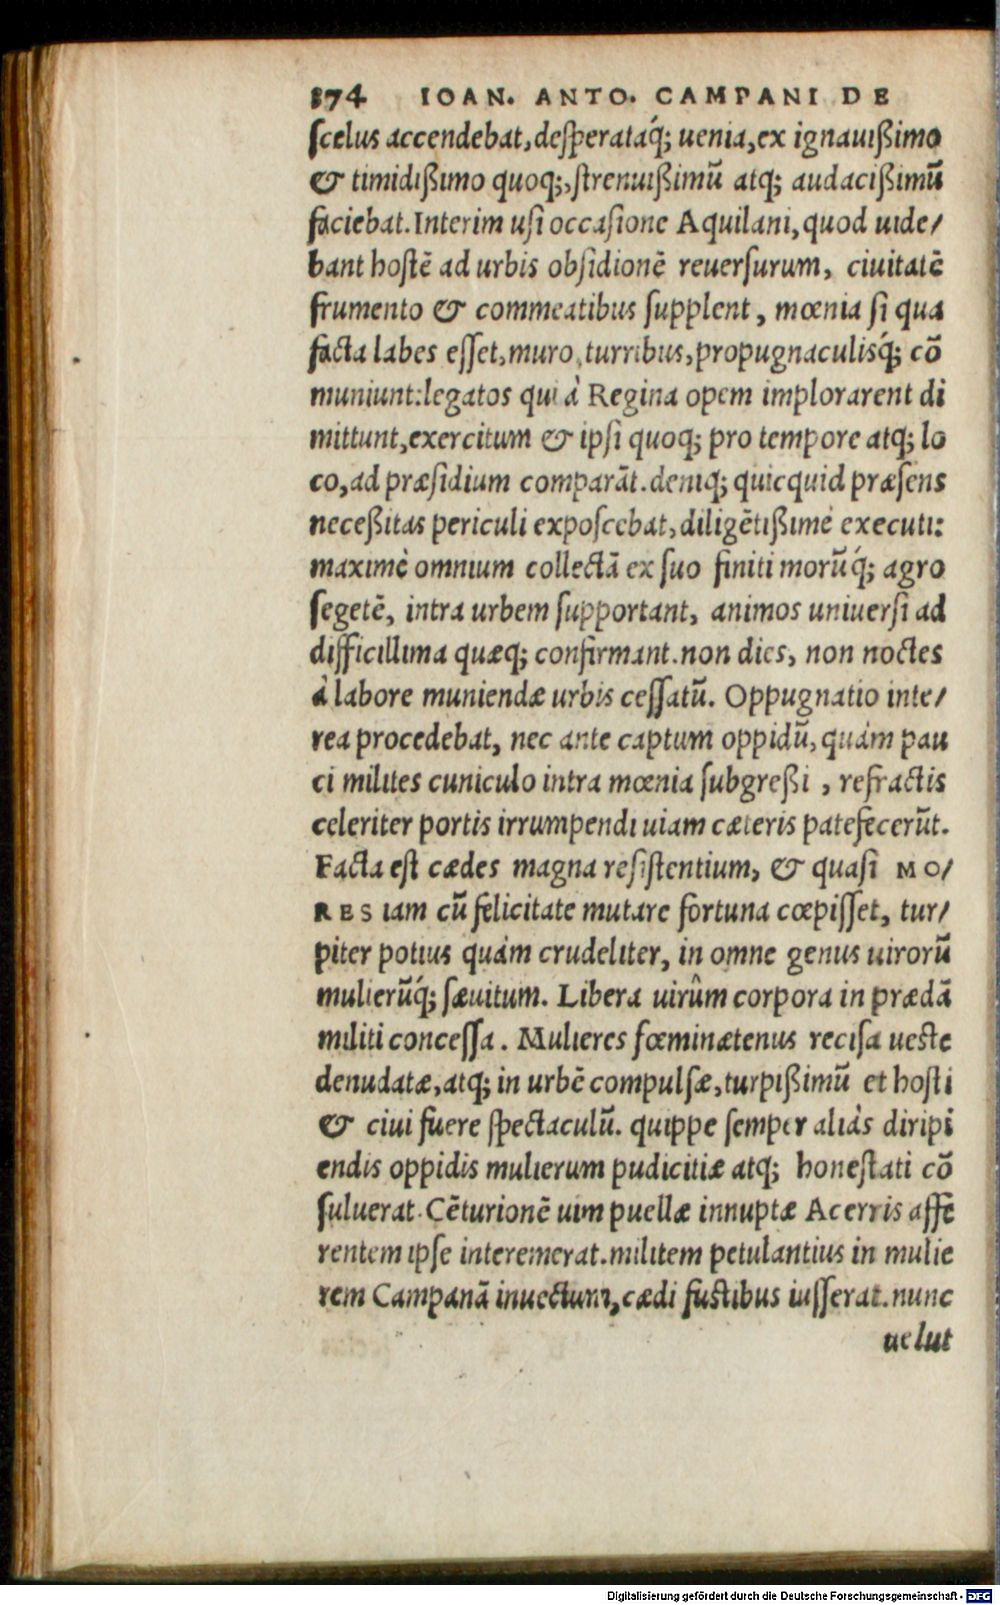 174 IOAN. ANTO. CAMPANI DE
scelus accendebat, desperataq́; uenia, ex ignauißimo
& timidißimo quoq;, strenuißimũ atq; audacißimũ
faciebat. Interim usi occasione Aquilani, quod uide/
bant hostẽ ad urbis obsidionẽ reuersurum, ciuitatẽ
frumento & commeatibus supplent, mœnia si qua
facta labes esset, muro, turribus, propugnaculisq́; cõ
muniunt: legatos qui à Regina opem implorarent di
mittunt, exercitum & ipsi quoq; pro tempore atq; lo
co, ad præsidium comparãt. deniq; quicquid præsens
neceßitas periculi exposcebat, diligẽtißimè executi:
maximè omnium collectã ex suo finiti morũq́; agro
segetẽ, intra urbem supportant, animos uniuersi ad
difficillima quæq; confirmant. non dies, non noctes
à labore muniendæ urbis cessatũ. Oppugnatio inte/
rea procedebat, nec ante captum oppidũ, quàm pau
ci milites cuniculo intra mœnia subgreßi, refractis
celeriter portis irrumpendi uiam cæteris patefecerũt.
Facta est cædes magna resistentium, & quasi MO/
RES iam cũ felicitate mutare fortuna cœpisset, tur/
piter potius quàm crudeliter, in omne genus uirorũ
mulierũq́; sæuitum. Libera uirûm corpora in prædã
militi concessa. Mulieres fœminætenus recisa ueste
denudatæ, atq; in urbẽ compulsæ, turpißimũ et hosti
& ciui fuere spectaculũ. quippe semper aliàs diripi
endis oppidis mulierum pudicitiæ atq; honestati cõ
suluerat. Cẽturionẽ uim puellæ innuptæ Acerris affẽ
rentem ipse interemerat. militem petulantius in mulie
rem Campanã inuectum, cædi fustibus iusserat. nunc
uelut
Digitalisierung gefördert durch die Deutsche Forschungsgemeinschaft - DFG